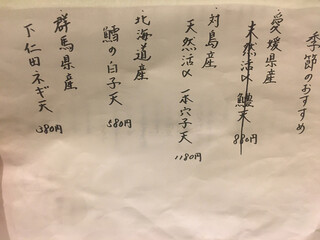 季節のおすすめ
愛媛県産
天然活〆 鱧天
880円
対馬産
天然活〆 一本穴子天
1180円
北海道産
鱈の白子天
580円
群馬県産
下仁田ネギ天
380円